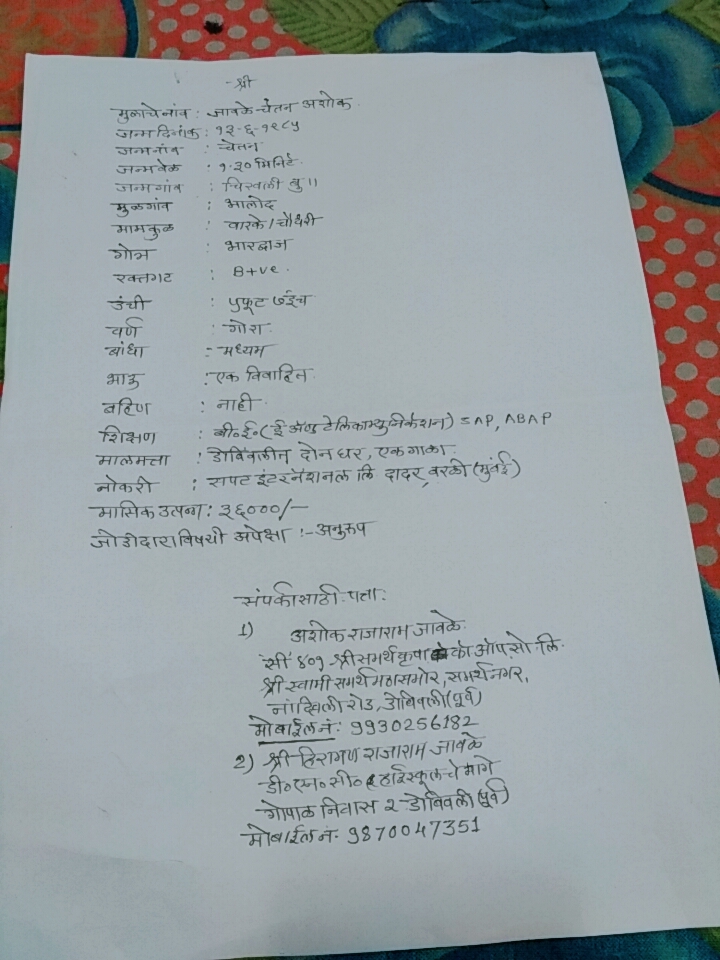 श्री
मुलाचे नांव : जावळे चेतन अशोक.
जन्म दिनांक : १३-६-१९८५
जन्म नांव : चेतन
जन्मवेळ : १.३० मिनिटे.
जन्मगांव : चिखली बु॥
मुळगांव : आलोद
मामकुळ : वारके/चौधरी
गोत्र : भारद्वाज
रक्तगट : B+ve.
उंची : ५फूट ७ईंच
वर्ण : गोरा.
बांधा :- मध्यम
भाऊ : एक विवाहित.
बहिण : नाही.
शिक्षण : बी०ई०(ई अँण्ड टेलिकाम्युनिकेशन) SAP, ABAP
मालमत्ता : डोंबिवलीत दोन घर, एक गाळा.
नोकरी : सपट इंटरनॅशनल लि दादर, वरळी (मुंबई)
मासिक उत्पन्न : ३६०००/-
जोडीदाराविषयी अपेक्षा :- अनुरूप
संपर्कासाठी पत्ता :
1) अशोक राजाराम जावळे.
'सी' ४०१ श्री समर्थ कृपा को ऑप.सो. लि.
श्री स्वामी समर्थ मठासमोर, समर्थ नगर,
नांदिवली रोड, डोंबिवली (पूर्व)
मोबाईल नं: 9930256182
2) श्री हिरामण राजाराम जावळे
डी०एन०सी० हाईस्कूलचे मागे
गोपाळ निवास २ डोंबिवली (पूर्व)
मोबाईल नं: 9870047351